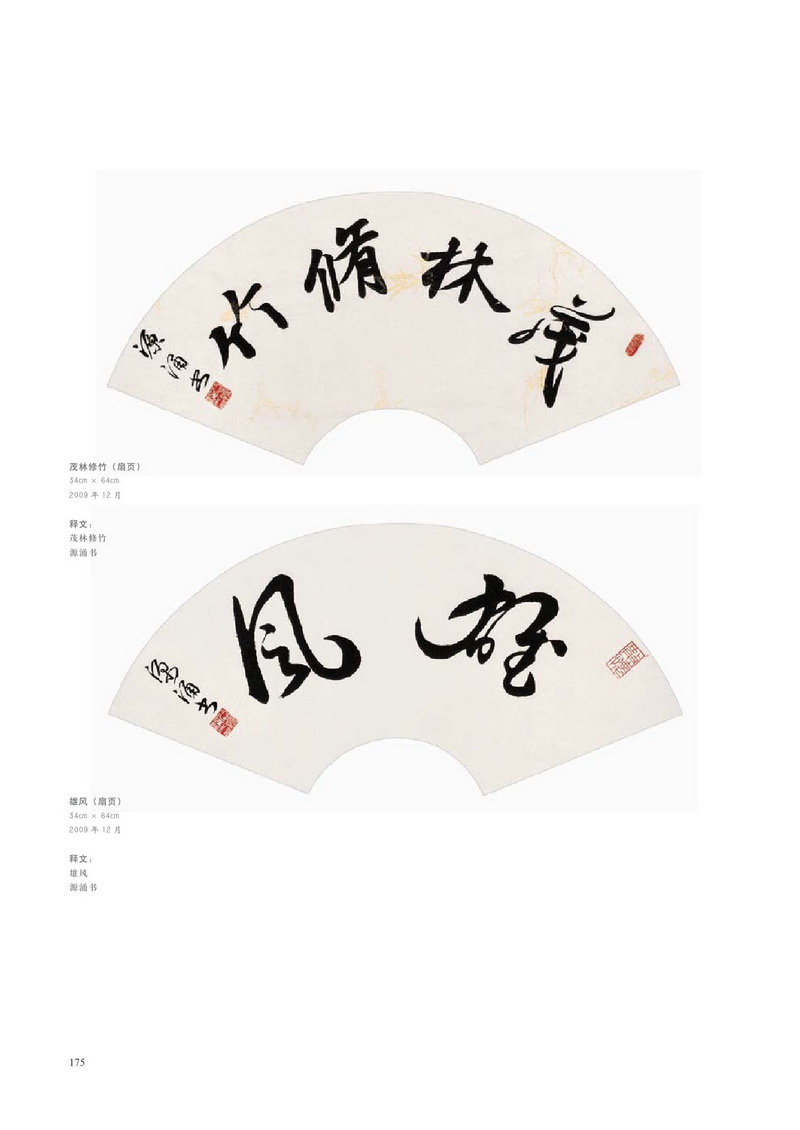 茂林脩竹
源涌书
茂林修竹（扇页）
34cm × 64cm
2009 年 12 月
释文：
茂林修竹
源涌书
雄风
源涌书
雄风（扇页）
34cm × 64cm
2009 年 12 月
释文：
雄风
源涌书
175